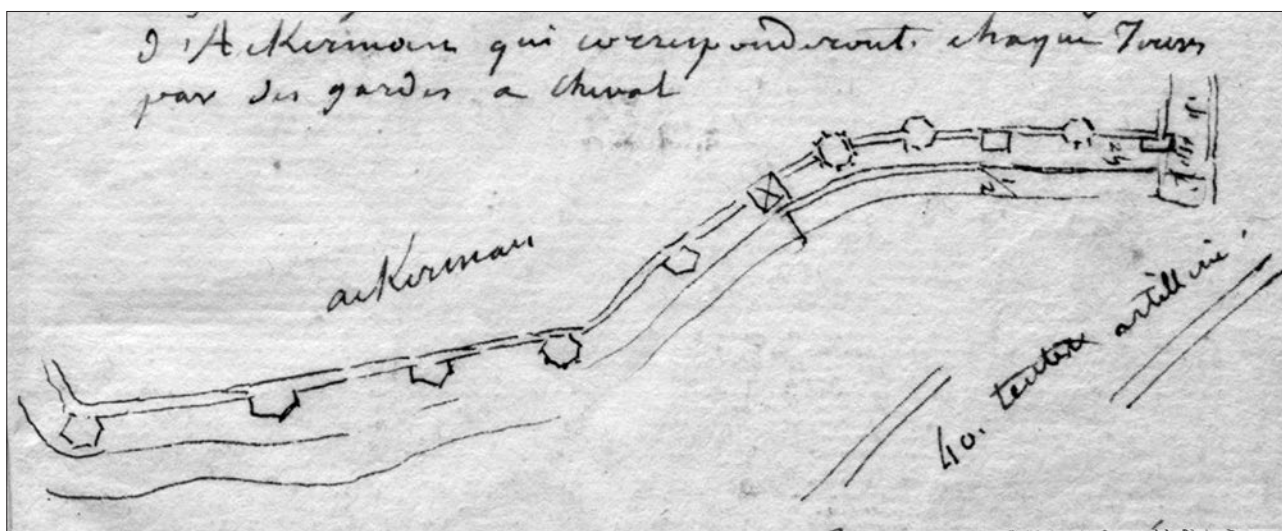 d'Ackerman qui correspondront chaque Jours
par des gardes a cheval
ackerman
40. tentes artillerie
24